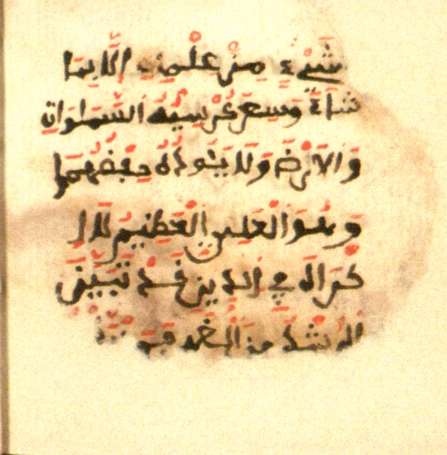 شَيْءٍ مِنْ عِلْمِهِ إِلَّا بِمَا
شَاءَ وَسِعَ كُرْسِيُّهُ السَّمَاوَاتِ
وَالْأَرْضَ وَلَا يَئُودُهُ حِفْظُهُمَا
وَهُوَ الْعَلِيُّ الْعَظِيمُ لَا إِ
كْرَاهَ فِي الدِّينِ قَدْ تَبَيَّنَ
الرُّشْدُ مِنَ الْغَيِّ فَمَنْ